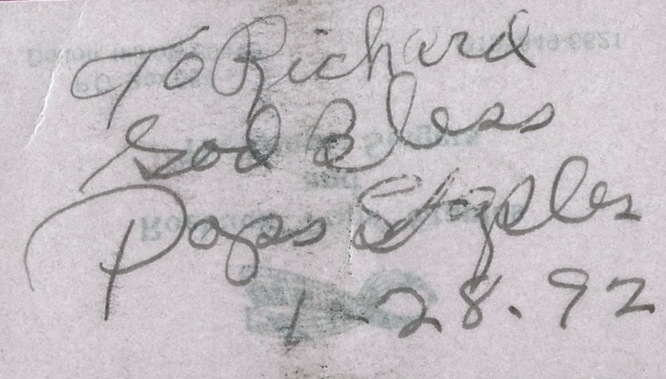 To Richard
God Bless
Pops Staples
1-28.92